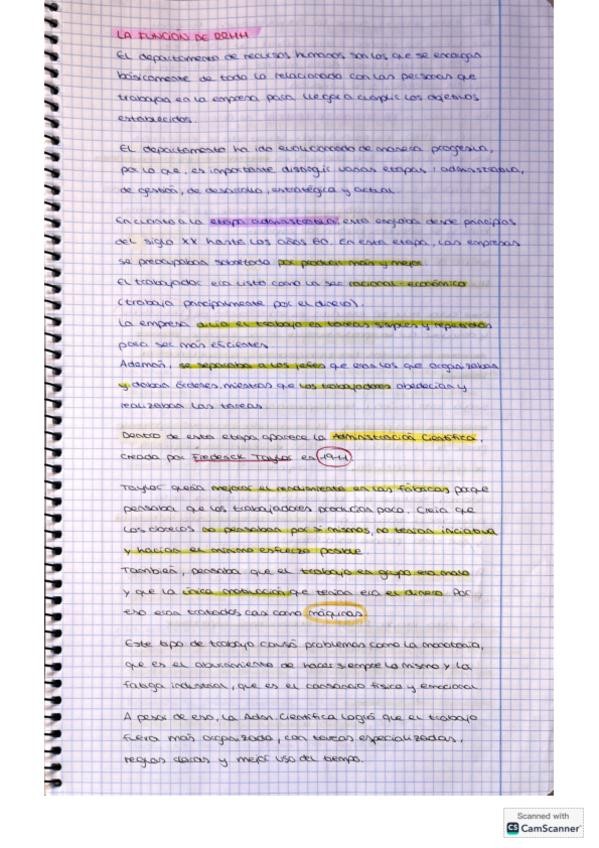 LA FUNCIÓN DE RRHH
El departamento de recursos humanos son los que se encargan
básicamente de todo lo relacionado con las personas que
trabajan en la empresa para llegar a cumplir los objetivos
establecidos.
El departamento ha ido evolucionando de manera progresiva,
por lo que, es importante distinguir varias etapas: administrativa,
de gestión, de desarrollo, estratégica y actual.
En cuanto a la etapa administrativa, esta englobaba desde principios
del siglo XX hasta los años 60. En esta etapa, las empresas
se preocupaban sobretodo por producir más y mejor.
El trabajador era visto como un ser racional-económico
(trabaja principalmente por el dinero).
La empresa dividía el trabajo en tareas simples y repetitivas
para ser más eficientes.
Además, se separaba a los jefes que eran los que organizaban
y daban órdenes, mientras que los trabajadores obedecían y
realizaban las tareas.
Dentro de esta etapa aparece la Administración Científica,
creada por Frederick Taylor en 1911.
Taylor quería mejorar el rendimiento en las fábricas porque
pensaba que los trabajadores producían poco. Creía que
los obreros no pensaban por sí mismos, no tenían iniciativa
y hacían el mínimo esfuerzo posible.
También, pensaba que el trabajo en grupo era malo
y que la única motivación que tenían era el dinero. Por
eso eran tratados casi como máquinas.
Este tipo de trabajo causó problemas como la monotonía,
que es el aburrimiento de hacer siempre lo mismo y la
fatiga industrial, que es el cansancio físico y emocional.
A pesar de eso, la Adm. Científica logró que el trabajo
fuera más organizado, con tareas especializadas,
reglas claras y mejor uso del tiempo.
Scanned with
CS CamScanner